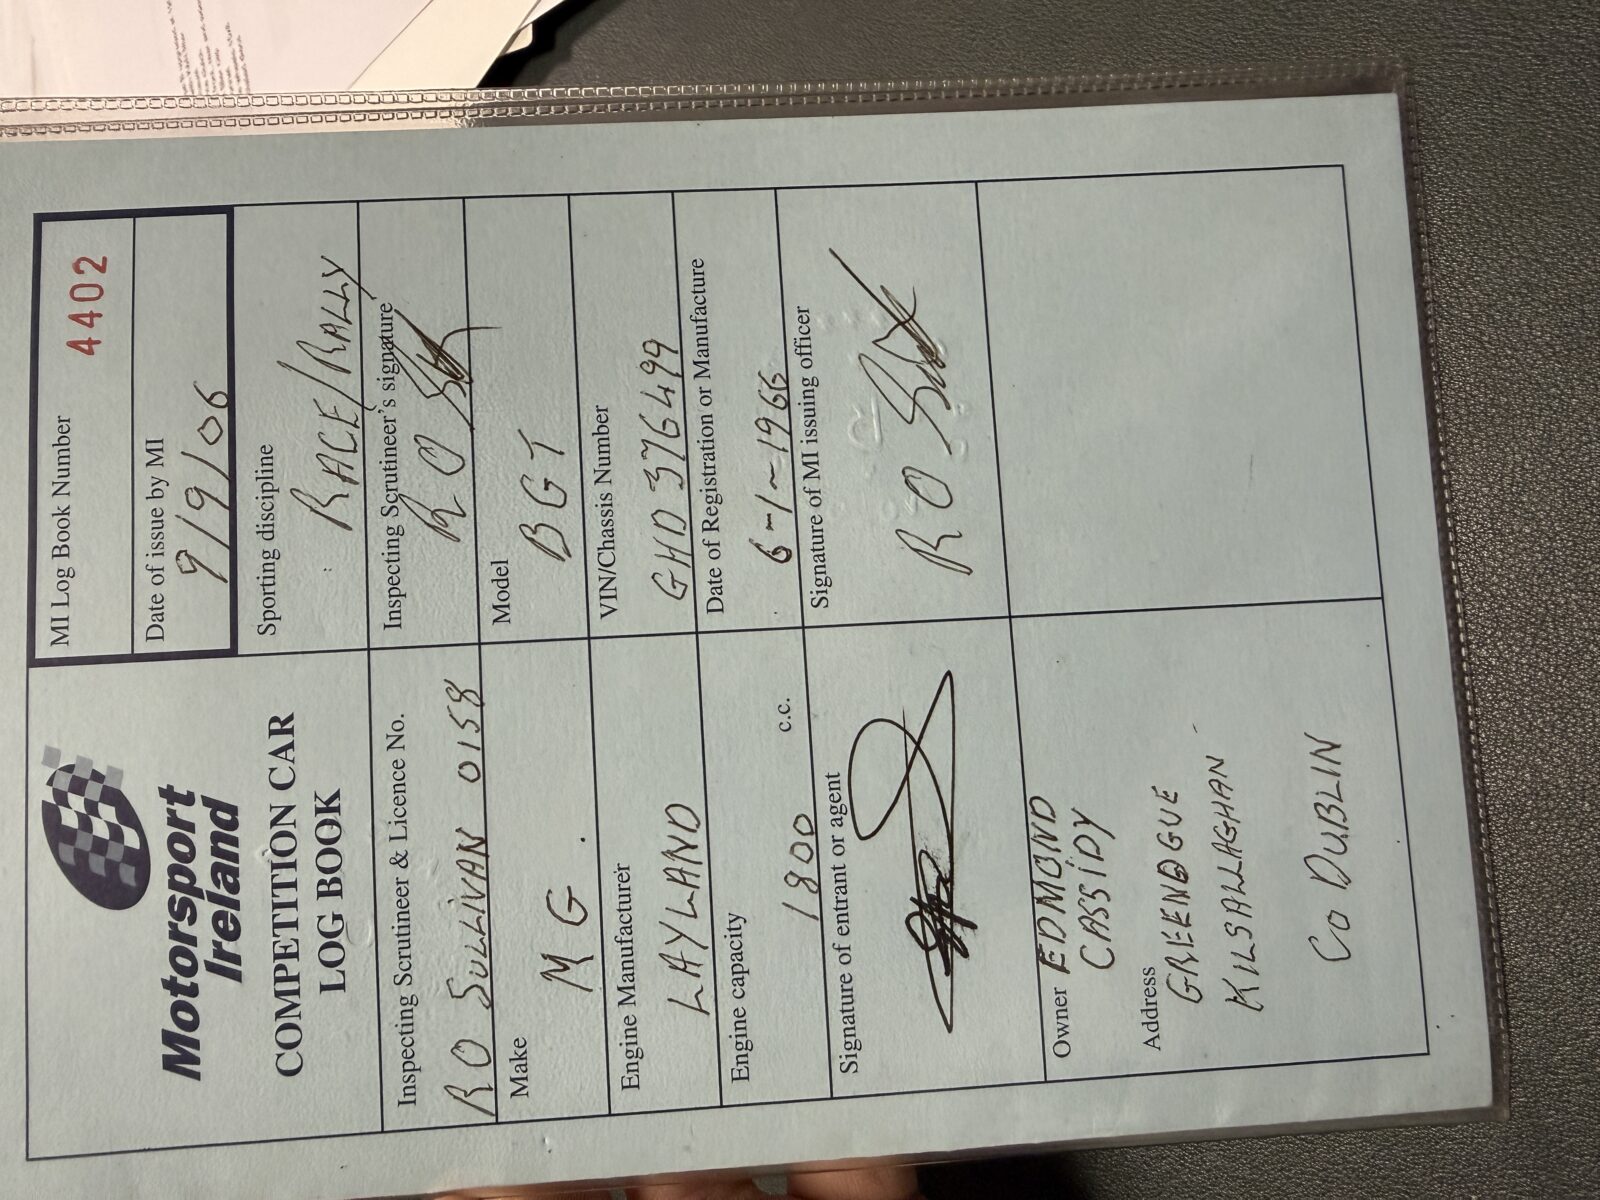 Motorsport
Ireland
COMPETITION CAR
LOG BOOK
MI Log Book Number
4402
Date of issue by MI
9/9/06
Sporting discipline
RACE/RALLY
Inspecting Scrutineer & Licence No.
RO SULLIVAN 0158
Inspecting Scrutineer's signature
R O
Make
MG
Model
BGT
Engine Manufacturer
LAYLAND
VIN/Chassis Number
GHD 376499
Engine capacity
1800 c.c.
Date of Registration or Manufacture
6-1-1966
Signature of entrant or agent
Signature of MI issuing officer
R O
Owner EDMOND
CASSIDY
Address
GREENOGUE
KILSALLAGHAN
Co DUBLIN